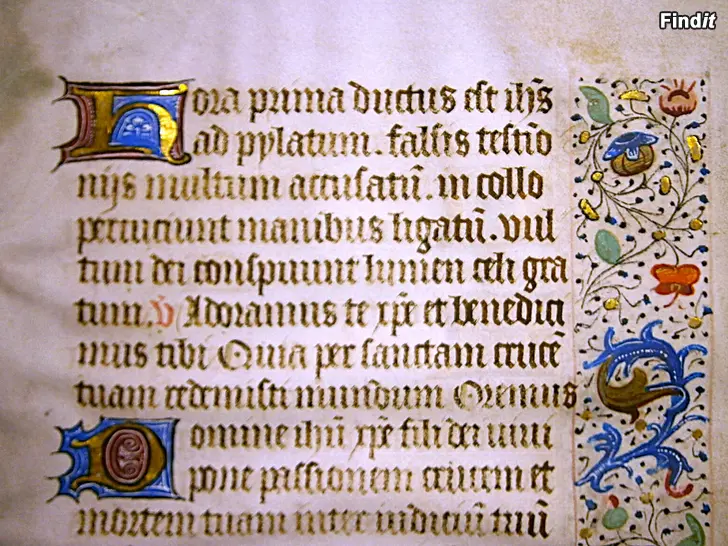 Findit
Hora prima ductus est ihs̄
ad pylatum. falsis testīo
nijs multum accusatū. in collo
percuciunt manibus ligatū. vul
tum dei conspuunt lumen celi gra
tum. V Adoramus te xp̄e et benedici
mus tibi Quia per sanctam crucē
tuam redemisti mundum Oremus
Domine ihū xp̄e fili dei uiui
pone passionem crucem et
mortem tuam inter iudiciū tuū